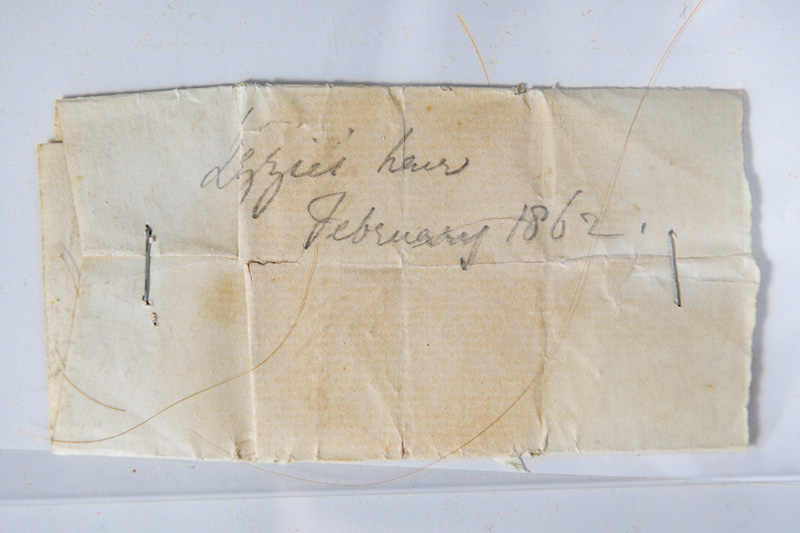 Lizzie's hair
February 1862.